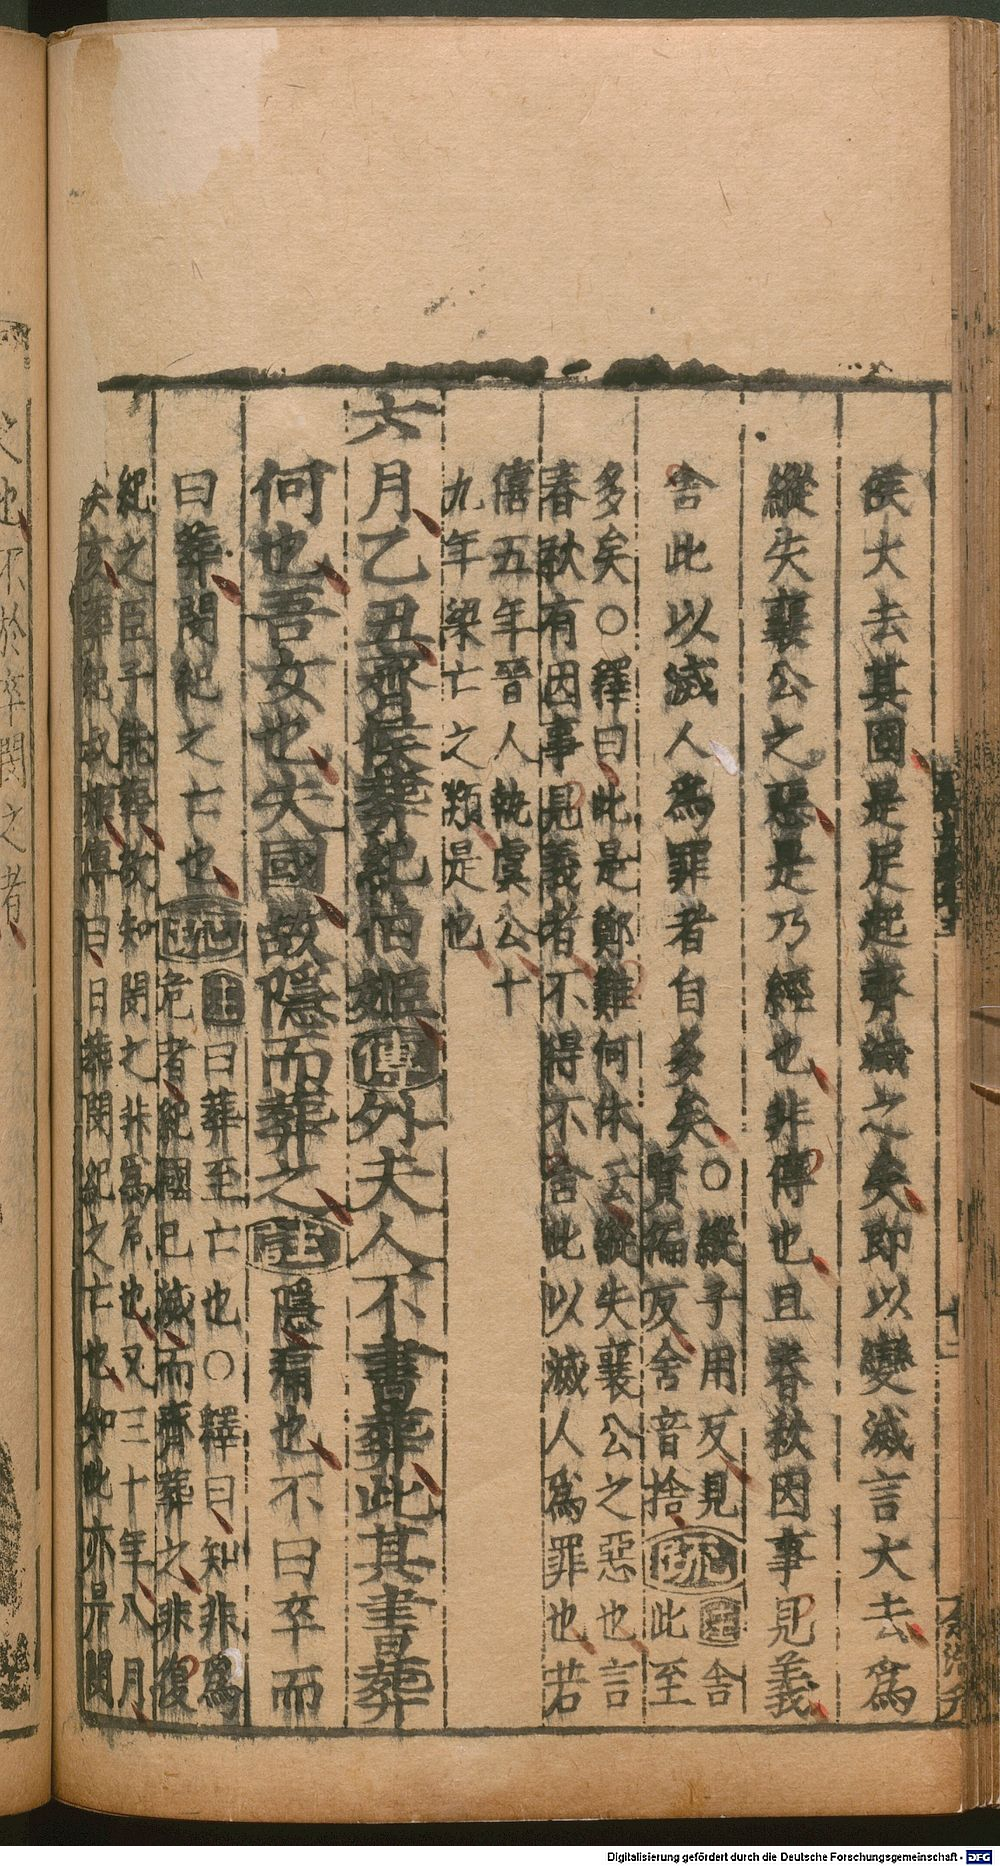 侯大去其國是足起齊滅之矣即以變滅言大去爲
縱失襄公之惡是乃經也非傳也且春秋因事見義
舍此以滅人爲罪者自多矣〇縱子用反見
賢徧反舍音捨疏註舍此至
多矣〇釋曰此是鄭難何休云縱失襄公之惡也言
春秋有因事見義者不得不舍此以滅人爲罪也若
僖五年晉人執虞公十
九年梁亡之類是也
六月乙丑齊侯葬紀伯姬傳外夫人不書葬此其書葬
何也吾女也失國故隱而葬之註隱痛也不曰卒而
曰葬閔紀之亡也疏註曰葬至亡也〇釋曰知非爲
危者紀國已滅而齊葬之非復
紀之臣子能葬故知閔之非爲危也又三十年八月
癸亥葬紀叔姬傳曰日葬閔紀之亡也知此亦是閔
Digitalisierung gefördert durch die Deutsche Forschungsgemeinschaft - DFG